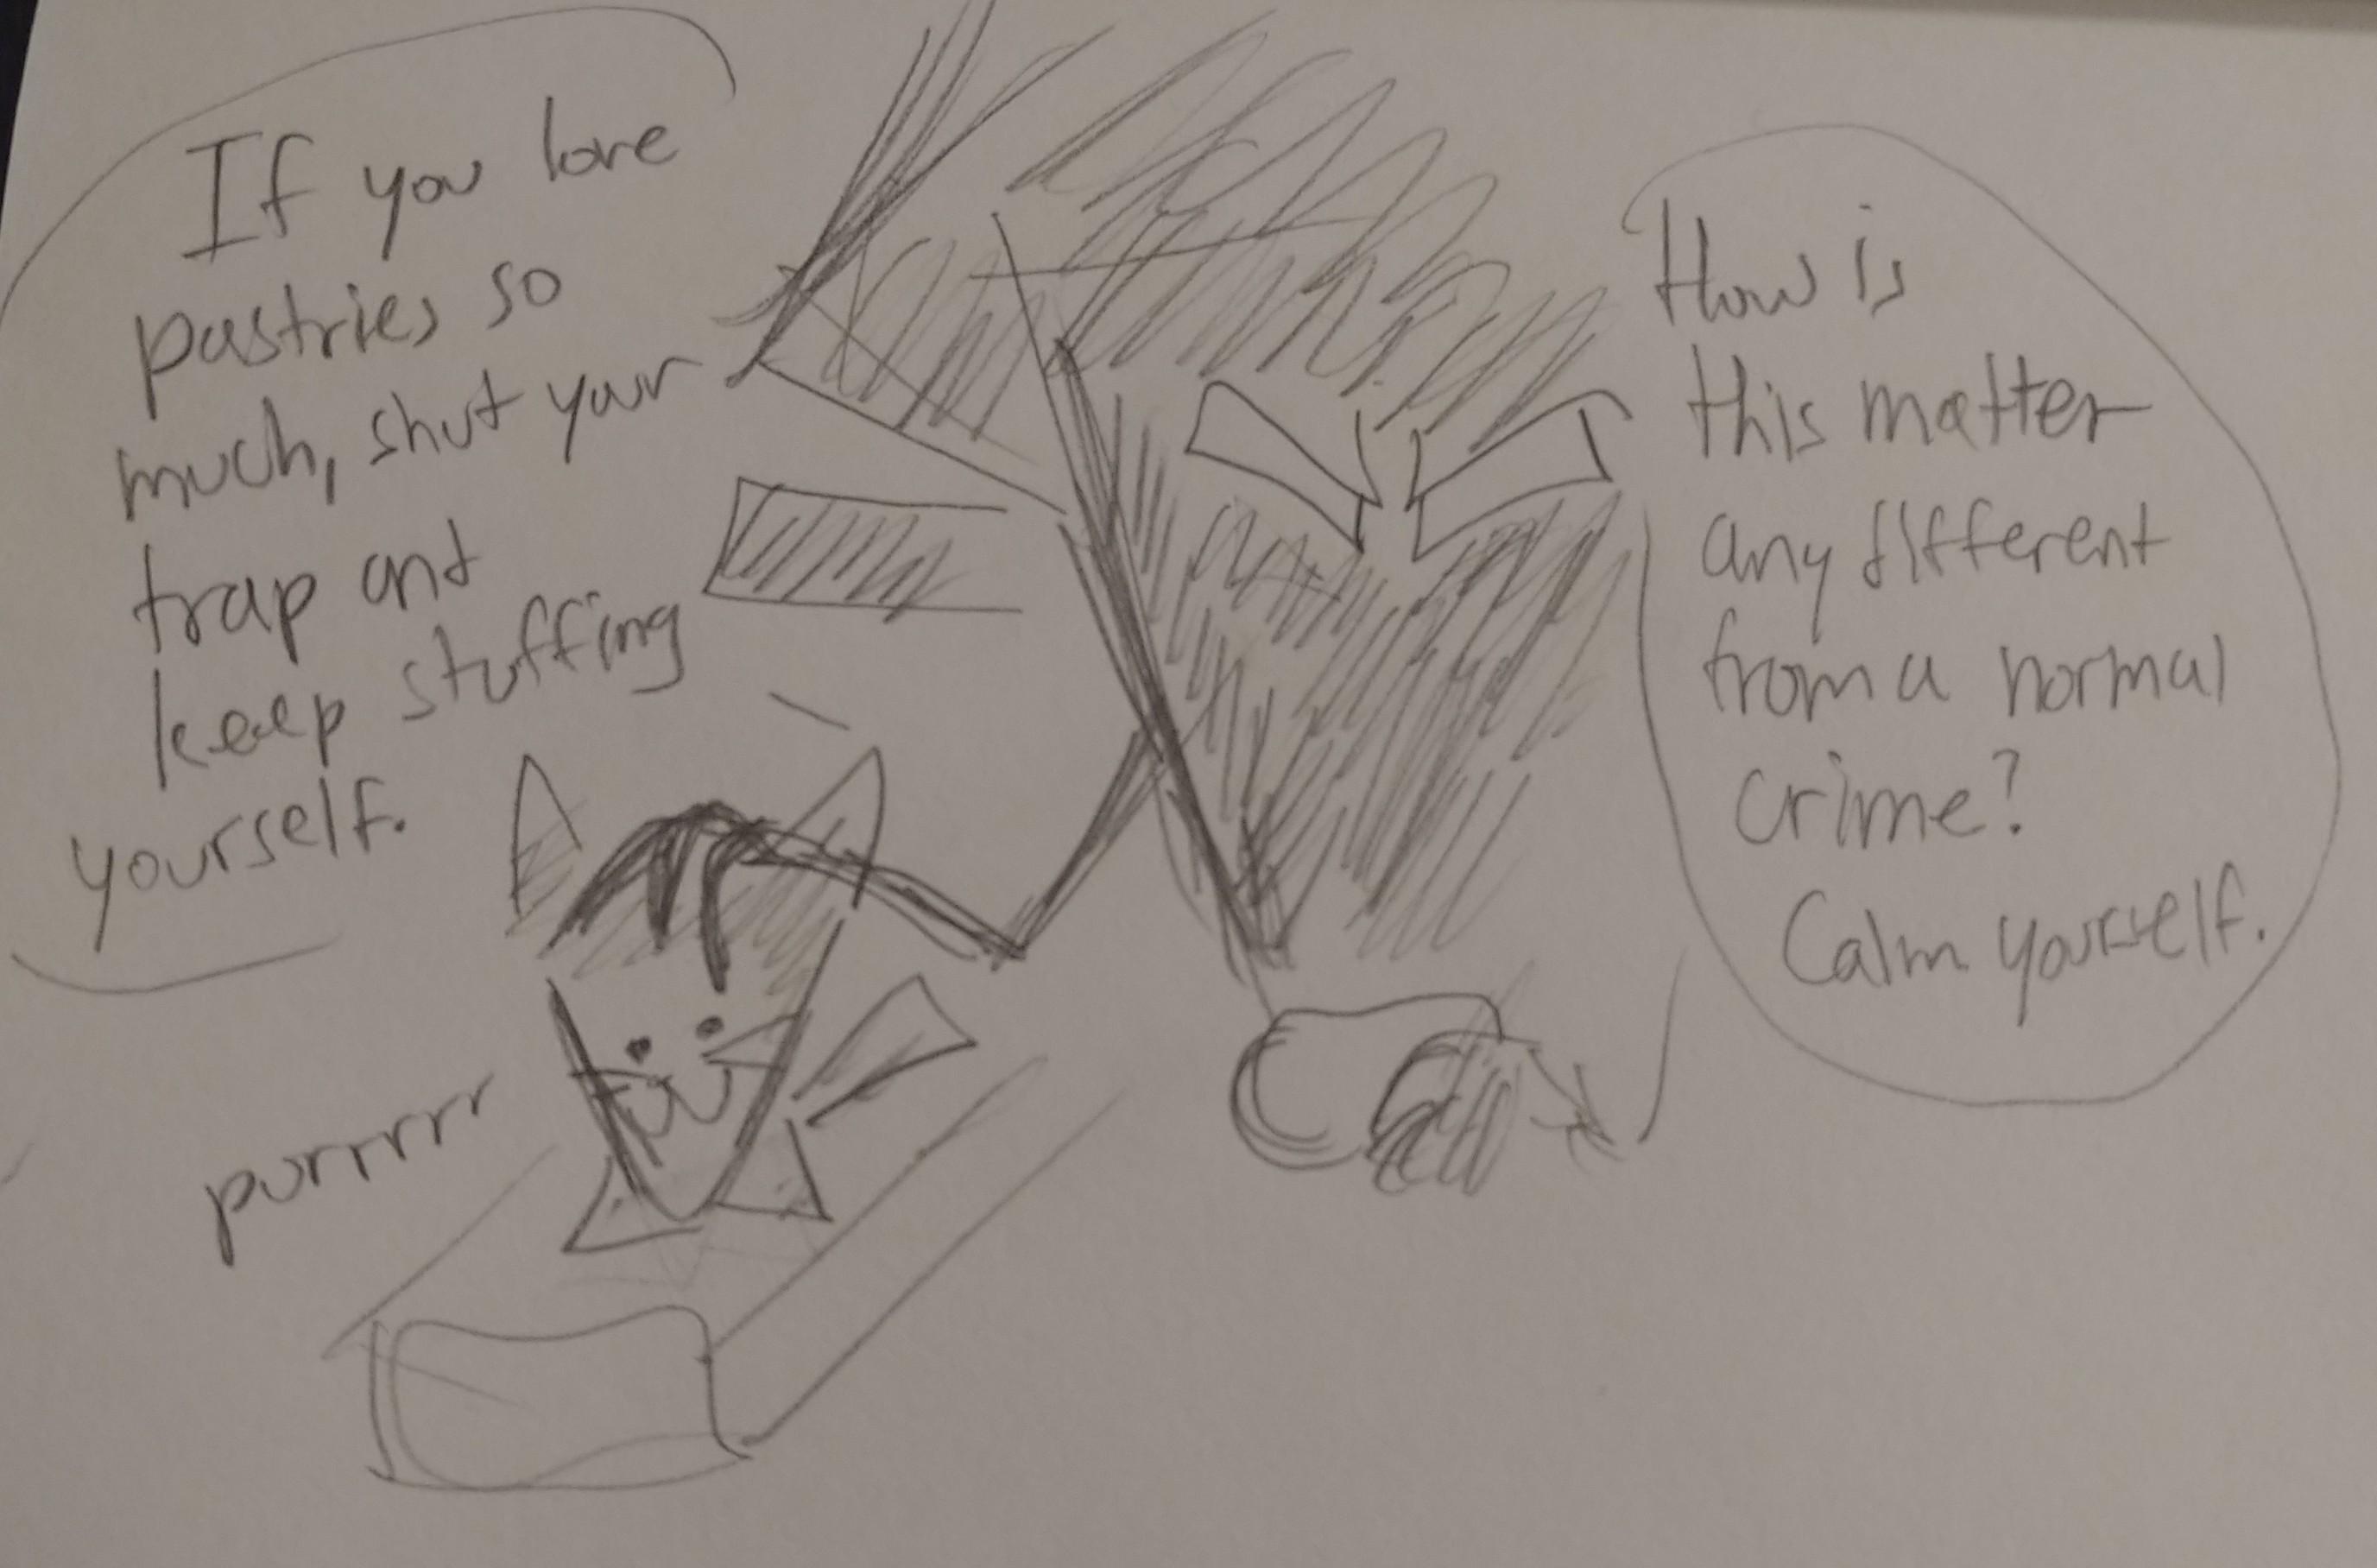 If you love
pastries so
much, shut your
trap and
keep stuffing
yourself.
How is
this matter
any different
from a normal
crime?
Calm yourself.
purrrrr